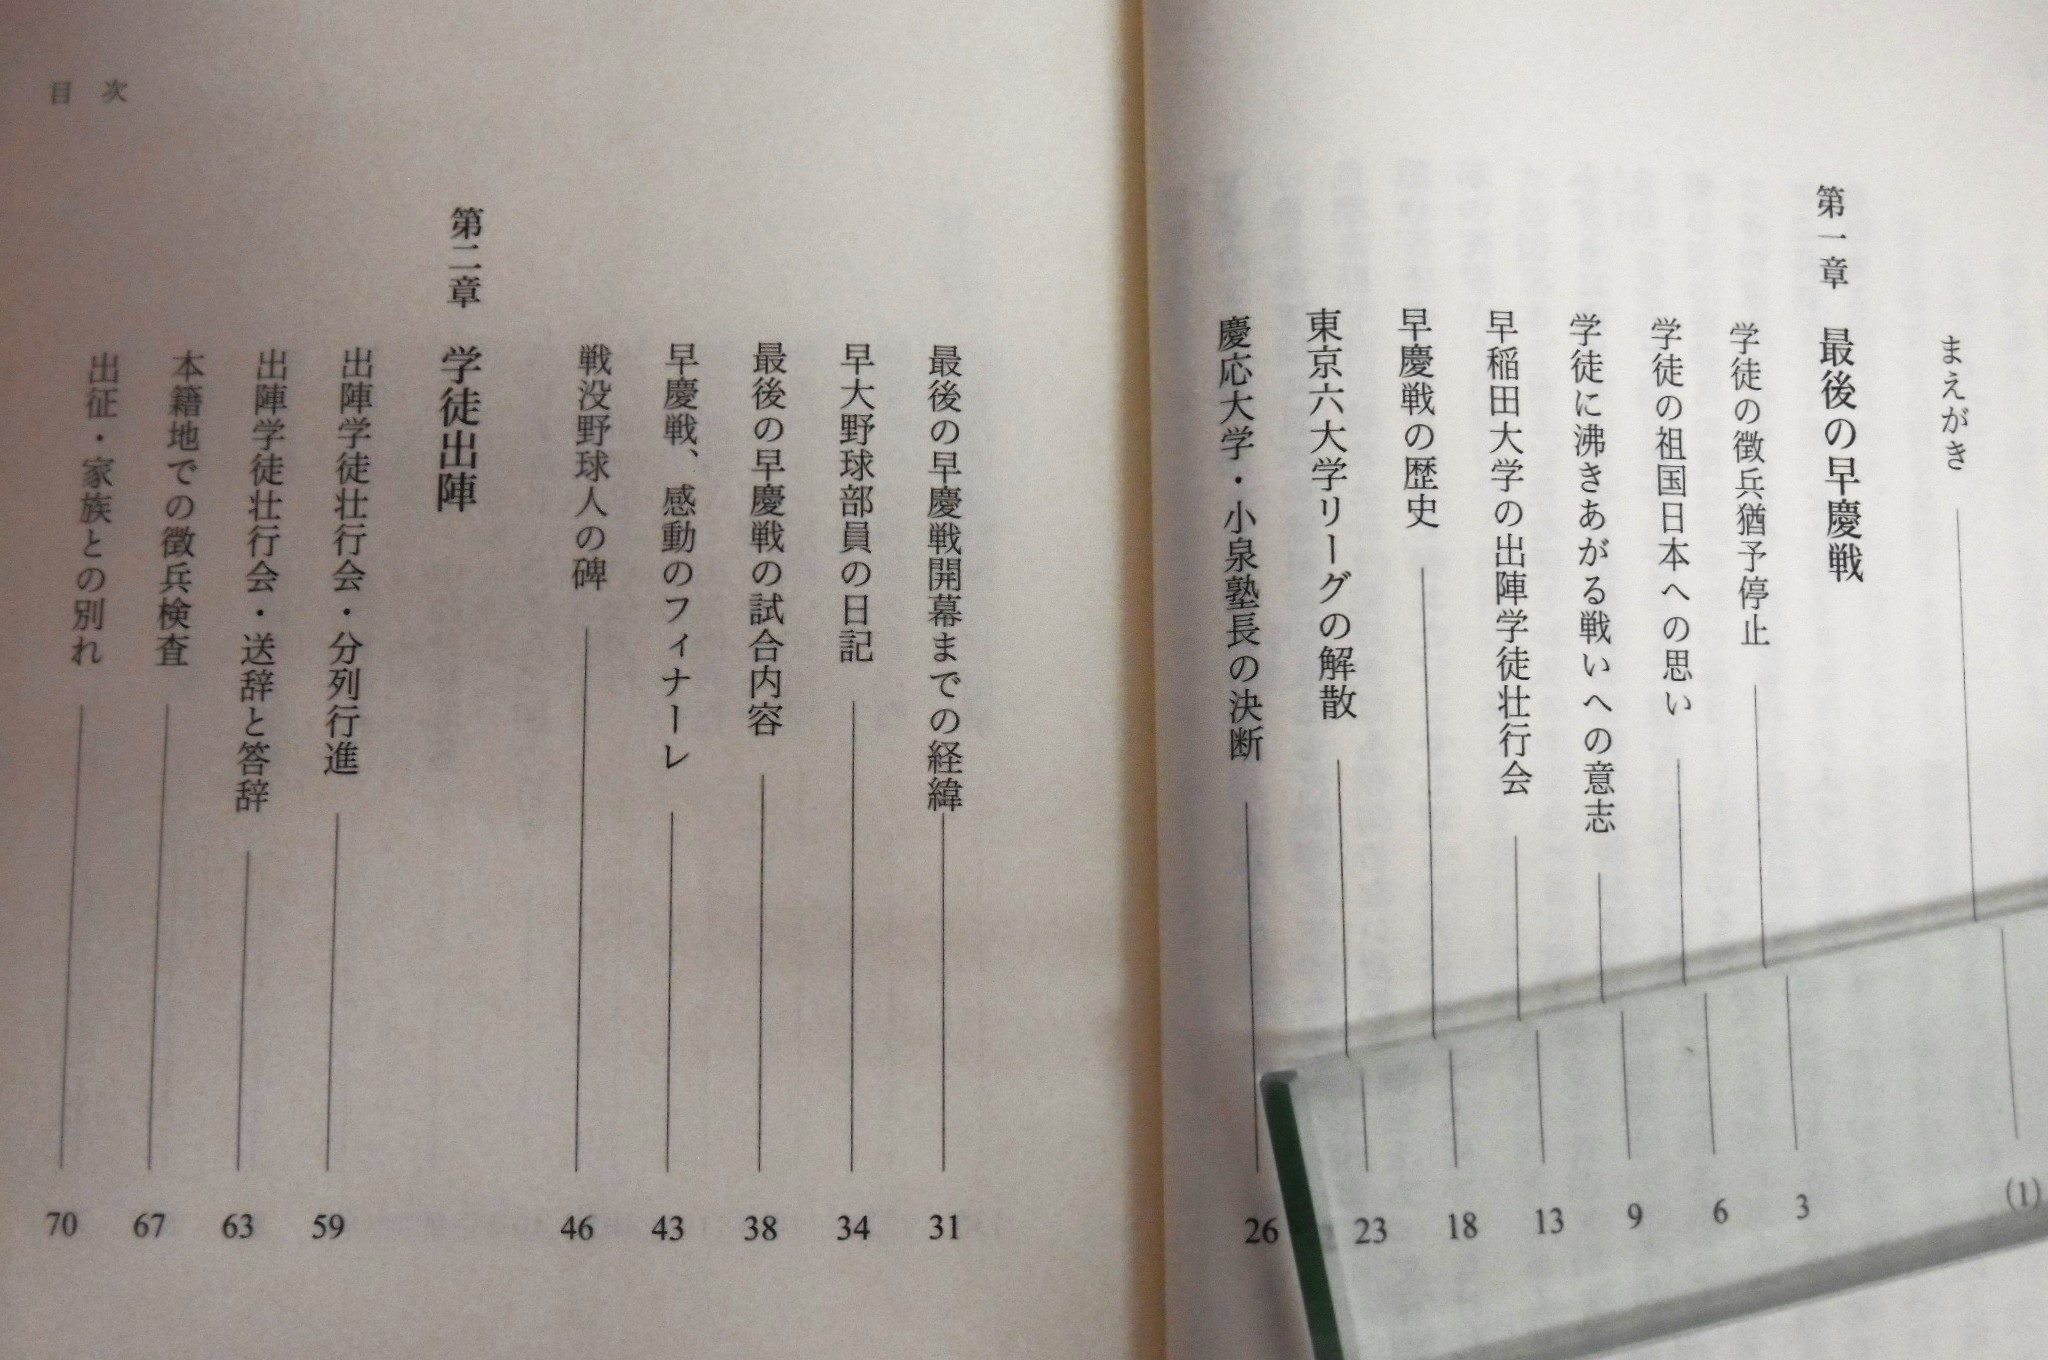 まえがき (1)
第一章 最後の早慶戦
学徒の徴兵猶予停止 3
学徒の祖国日本への思い 6
学徒に沸きあがる戦いへの意志 9
早稲田大学の出陣学徒壮行会 13
早慶戦の歴史 18
東京六大学リーグの解散 23
慶応大学・小泉塾長の決断 26
目次
最後の早慶戦開幕までの経緯 31
早大野球部員の日記 34
最後の早慶戦の試合内容 38
早慶戦、感動のフィナーレ 43
戦没野球人の碑 46
第二章 学徒出陣
出陣学徒壮行会・分列行進 59
出陣学徒壮行会・送辞と答辞 63
本籍地での徴兵検査 67
出征・家族との別れ 70